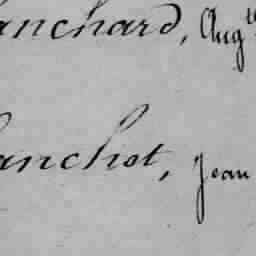 anchard, Aug
anchot, Jean